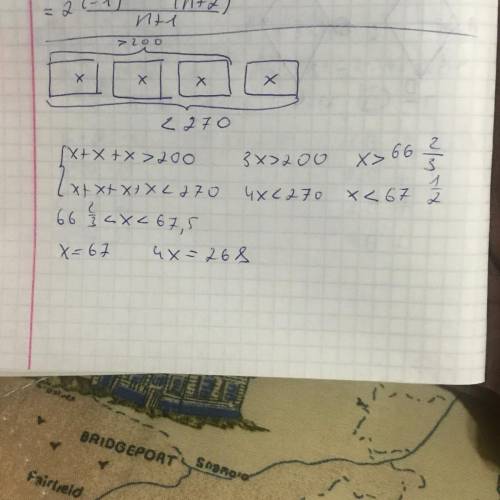 = 2 (-1) (n+2)
n+1
>200
x x x x
<270
x+x+x>200 3x>200 x>66 2/3
x+x+x+x<270 4x<270 x<67 1/2
66 2/3<x<67,5
x=67 4x=268
BRIDGEPORT
Fairfield